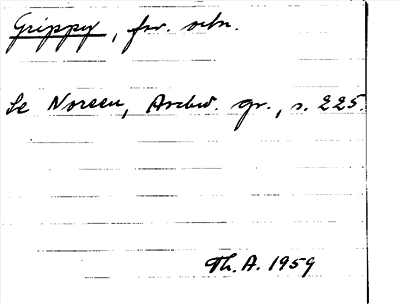 Grippy, fsv. ortn.
Se Noreen, Aschw. gr., s. 225.
Th. A. 1959